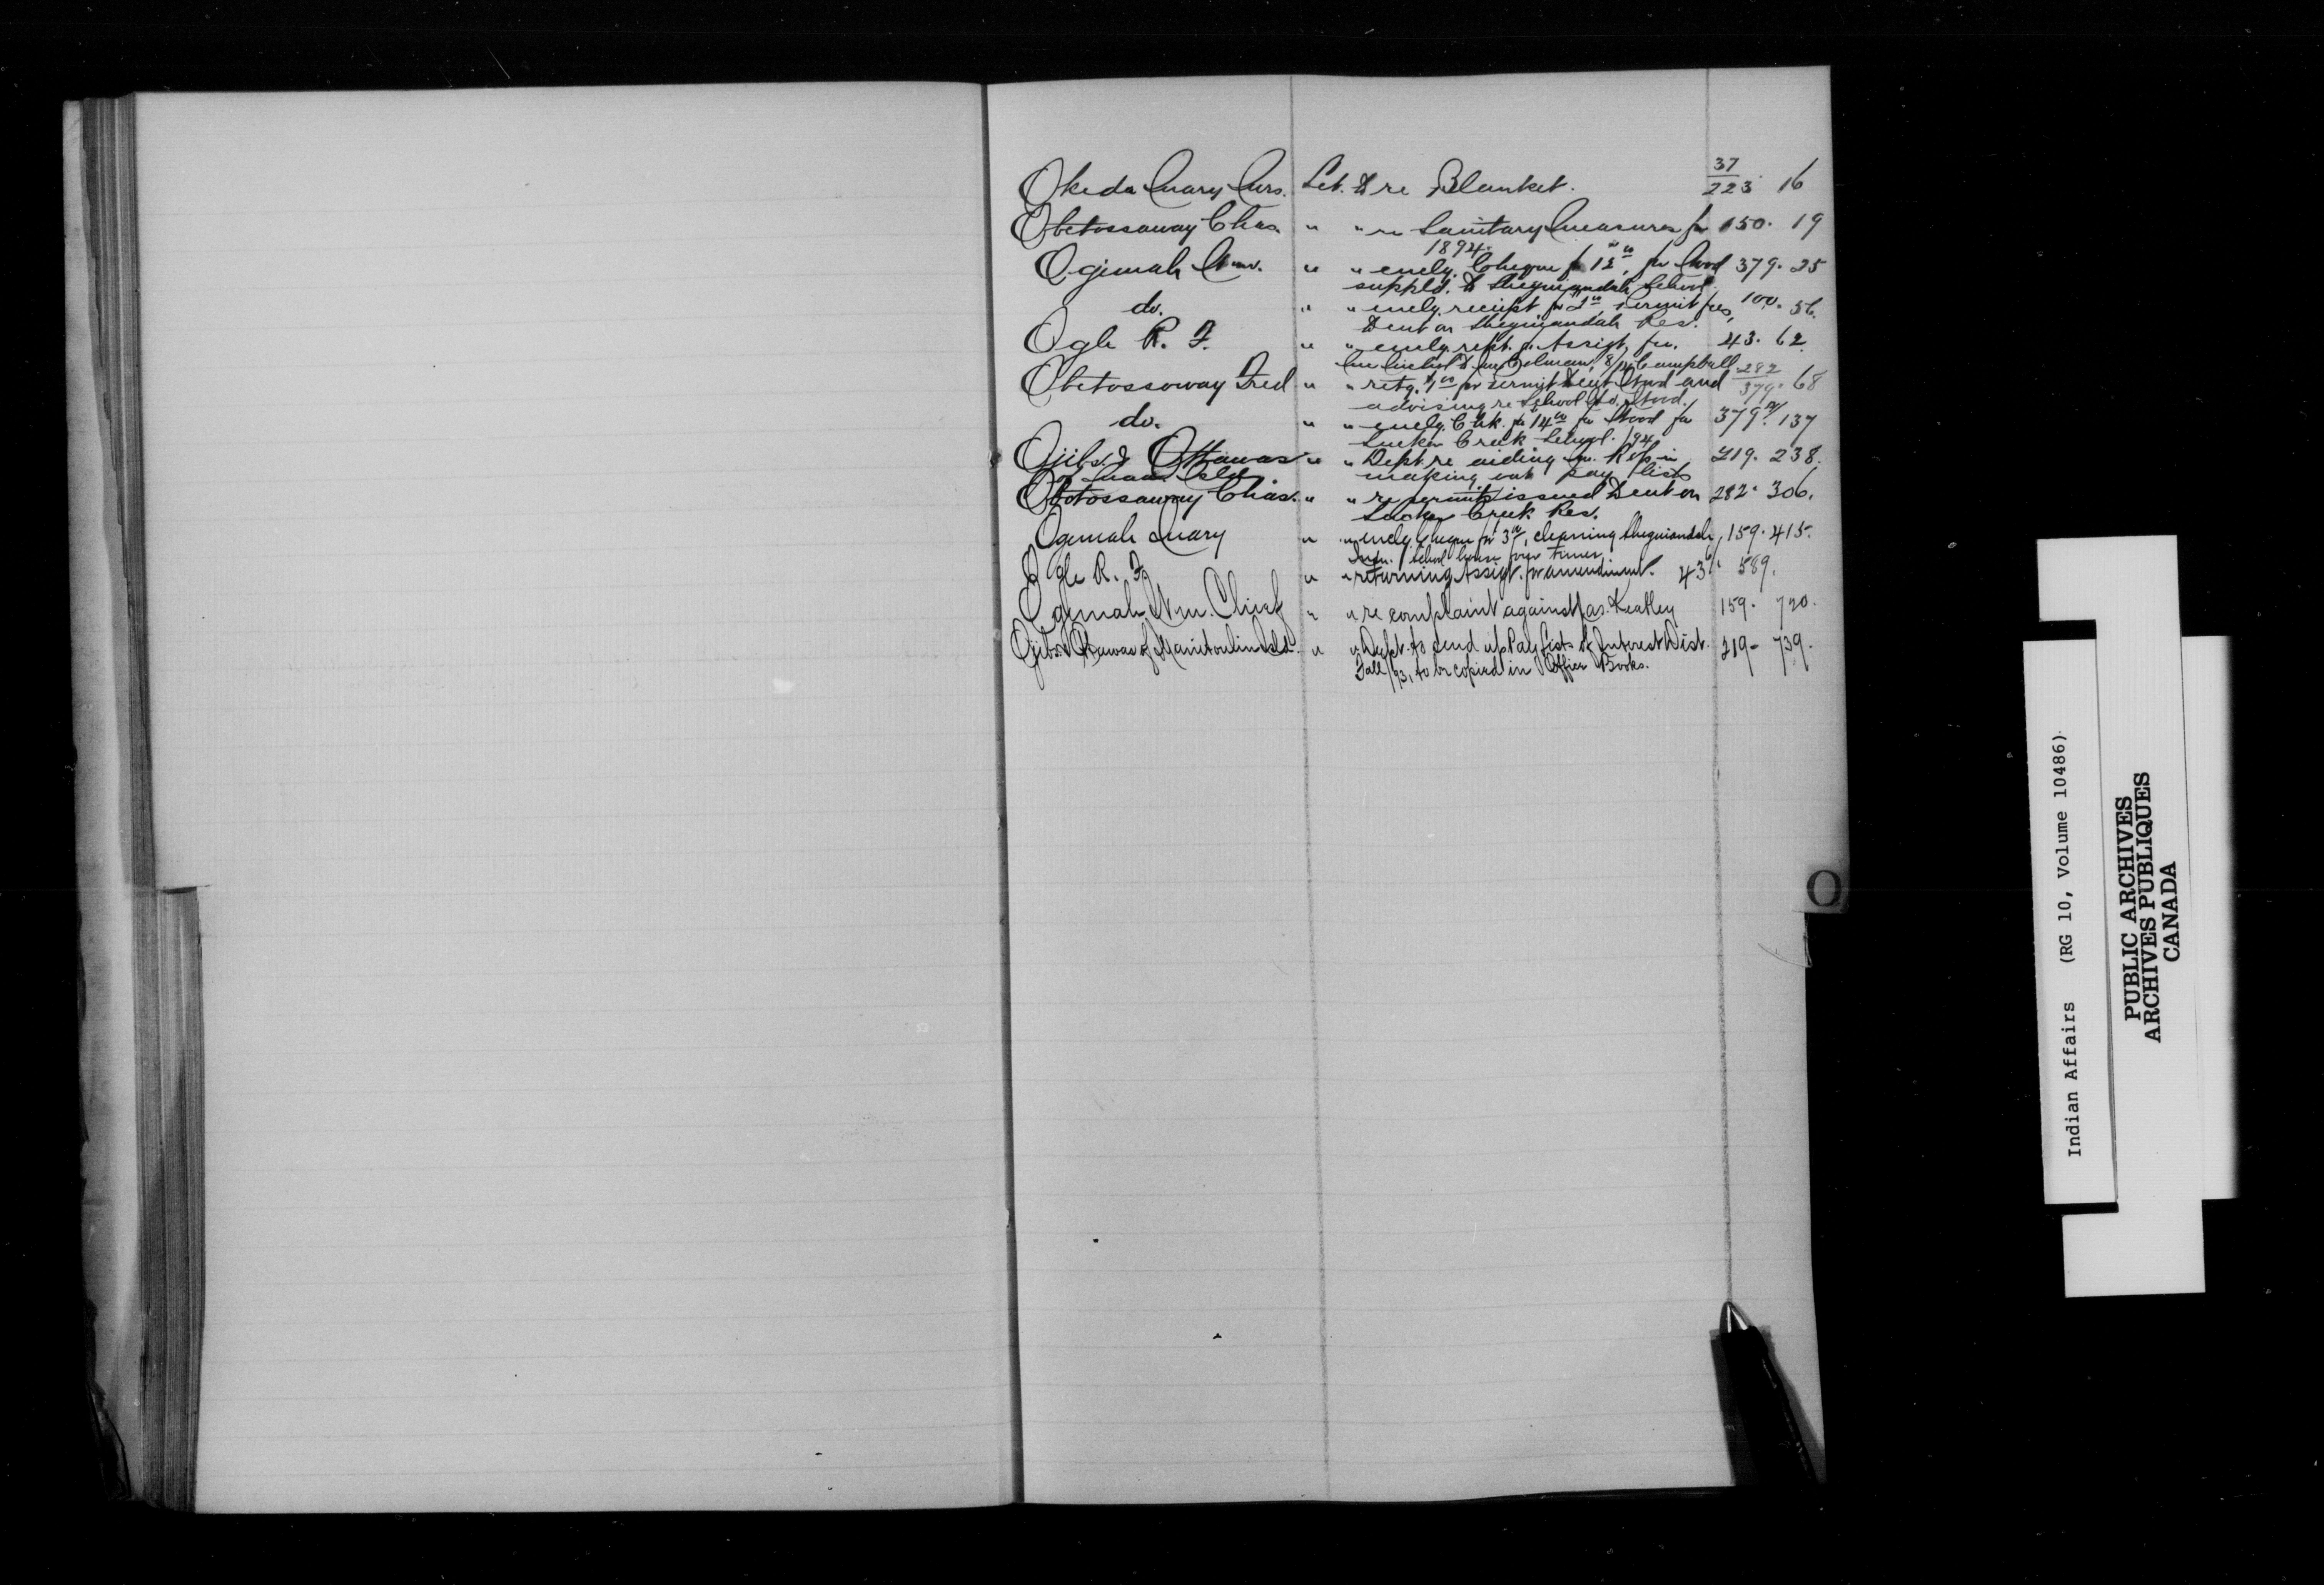 Okeda Mary Mrs. Let. to re Blanket. 37/223 16
Obetossaway Chas. " " re Sanitary Measures for 150. 19
1894.
Ogemah Wm. " " encly. Cheque for 12 00, for Wood 379. 25
suppld. to Sheguiandah School.
do. " " encly. receipt for permit fees, 100. 56.
to cut on Sheguiandah Res.
Ogle R. F. " " encly. rept. Assigt. fee. 43. 62.
Campbell
Obetossoway Fred " " retg. $1 00 for permit to cut Wood and 282/379. 68
advising re School Wood.
do. " " encly. Chk. for 14 00 for Wood for 379. 137
Sucker Creek School. /94
Ojibs. & Ottawas " " Dept. re aiding in 219. 238.
of Man. Isld. making out pay lists
Obetossaway Chas. " " re permits issued to cut on 282. 306.
Sucker Creek Res.
Ogemah Mary " " encly. cheque for 3 00, cleaning Sheguiandah 159. 415.
Indn. School house four times.
Ogle R. F. " " returning Assigt. for amendment. 43. 589.
Ogemah Wm. Chief " " re complaint against Jas. Keatley 159. 720.
Ojibs & Otawas of Manitoulin Isld. " " Dept. to send up Pay Lists of Interest Dist. 219- 739.
Fall/93, to be copied in Office Books.
O
Indian Affairs (RG 10, Volume 10486)
PUBLIC ARCHIVES
ARCHIVES PUBLIQUES
CANADA